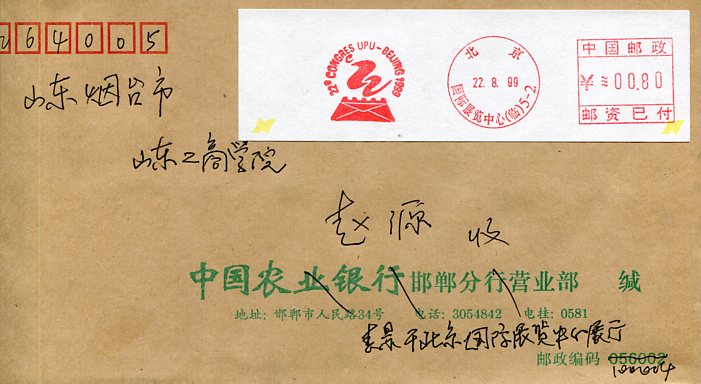 264005
22e CONGRES UPU-BEIJING 1999
北京
22.8.99
国际展览中心(临)5-2
中国邮政
00.80
邮资已付
山东烟台市
山东工商学院
赵源 收
中国农业银行邯郸分行营业部 缄
地址: 邯郸市人民路34号 电话: 3054842 电挂: 0581
李景平北京国际展览中心展厅
邮政编码 056002